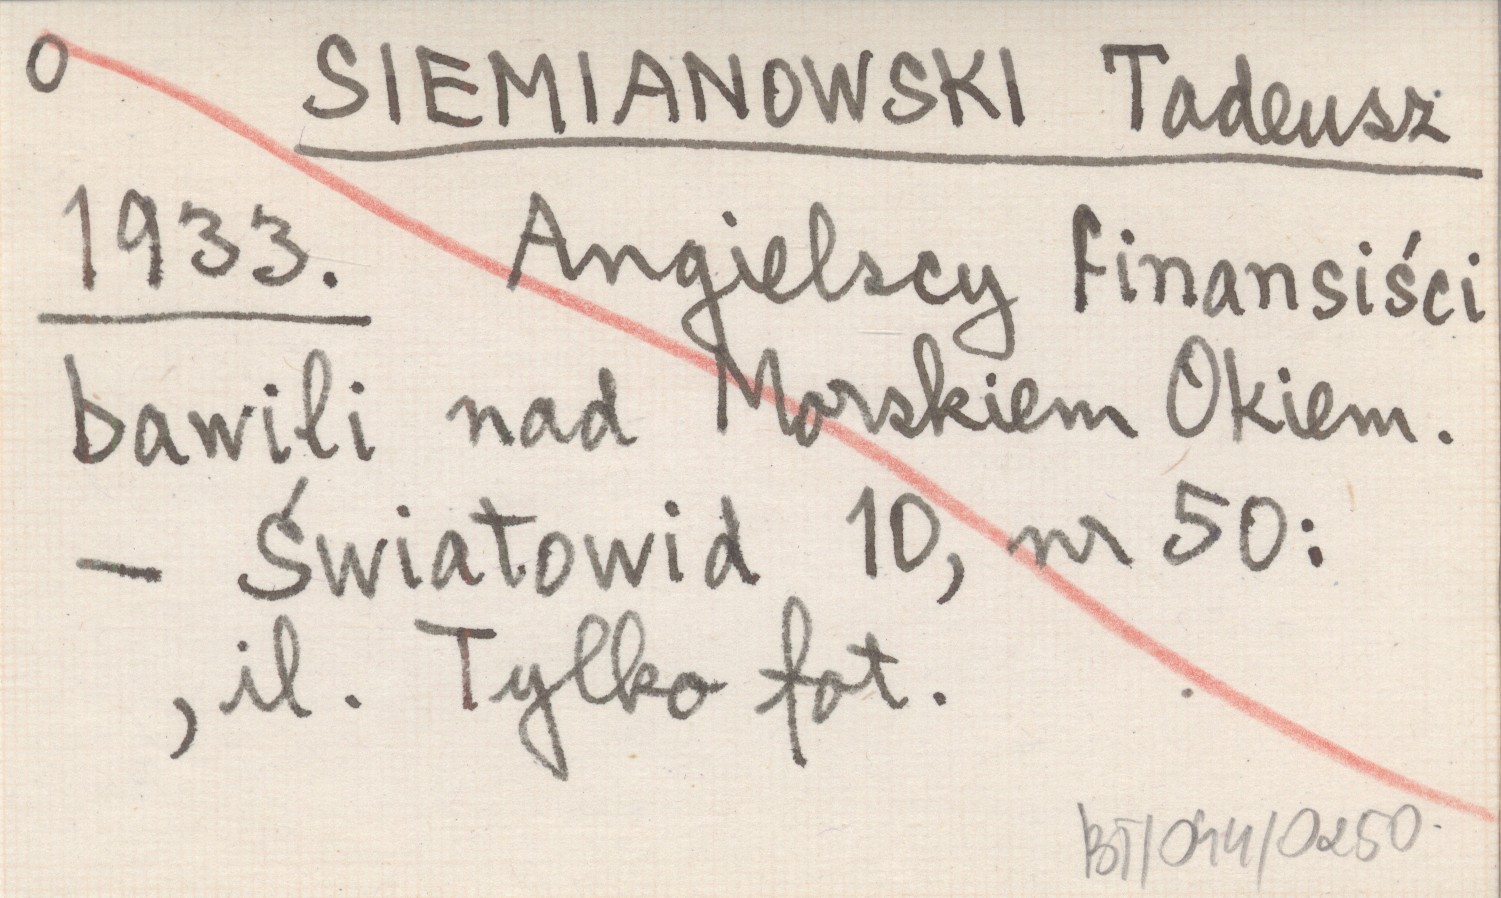 O SIEMIANOWSKI Tadeusz
1933. Angielscy finansiści
bawili nad Morskiem Okiem.
- Światowid 10, nr 50:
, il. Tylko fot.
BT/044/0250